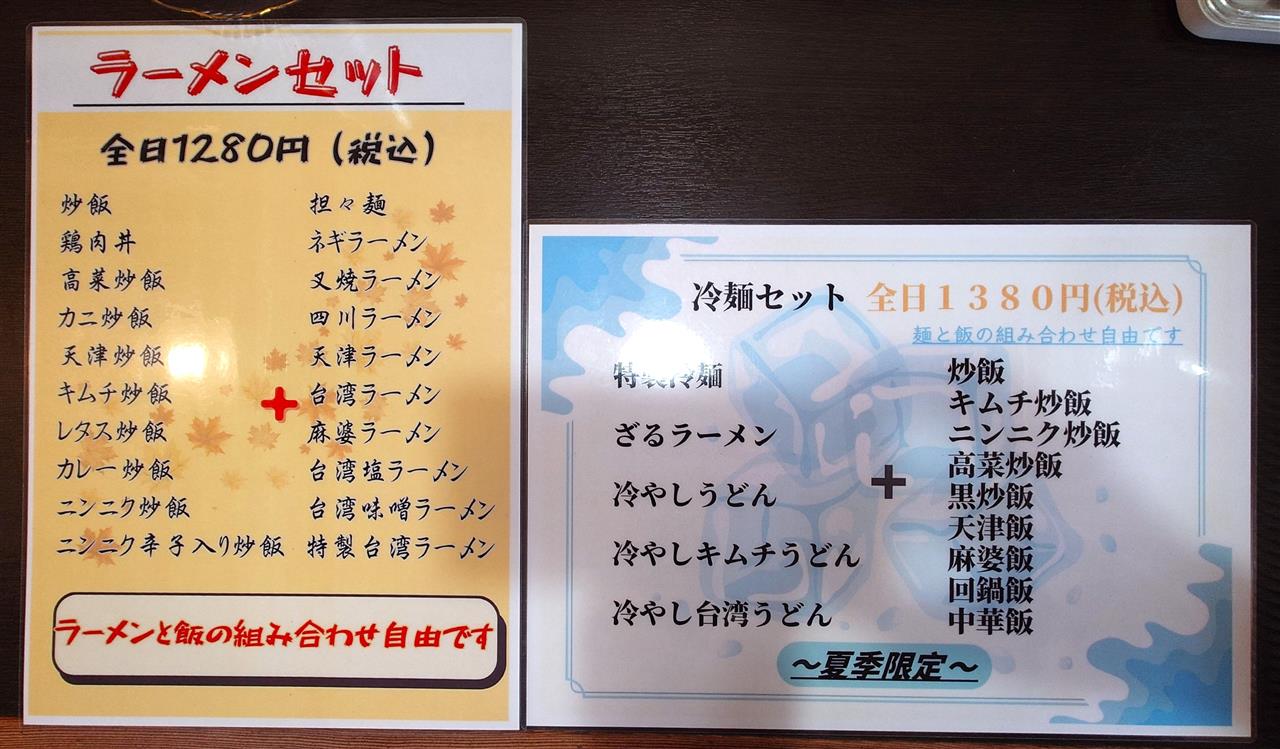 ラーメンセット
全日1280円（税込）
炒飯
鶏肉丼
高菜炒飯
カニ炒飯
天津炒飯
キムチ炒飯
レタス炒飯
カレー炒飯
ニンニク炒飯
ニンニク辛子入り炒飯
+
担々麺
ネギラーメン
叉焼ラーメン
四川ラーメン
天津ラーメン
台湾ラーメン
麻婆ラーメン
台湾塩ラーメン
台湾味噌ラーメン
特製台湾ラーメン
ラーメンと飯の組み合わせ自由です
冷麺セット 全日１３８０円(税込)
麺と飯の組み合わせ自由です
特製冷麺
ざるラーメン
冷やしうどん
冷やしキムチうどん
冷やし台湾うどん
+
炒飯
キムチ炒飯
ニンニク炒飯
高菜炒飯
黒炒飯
天津飯
麻婆飯
回鍋飯
中華飯
～夏季限定～